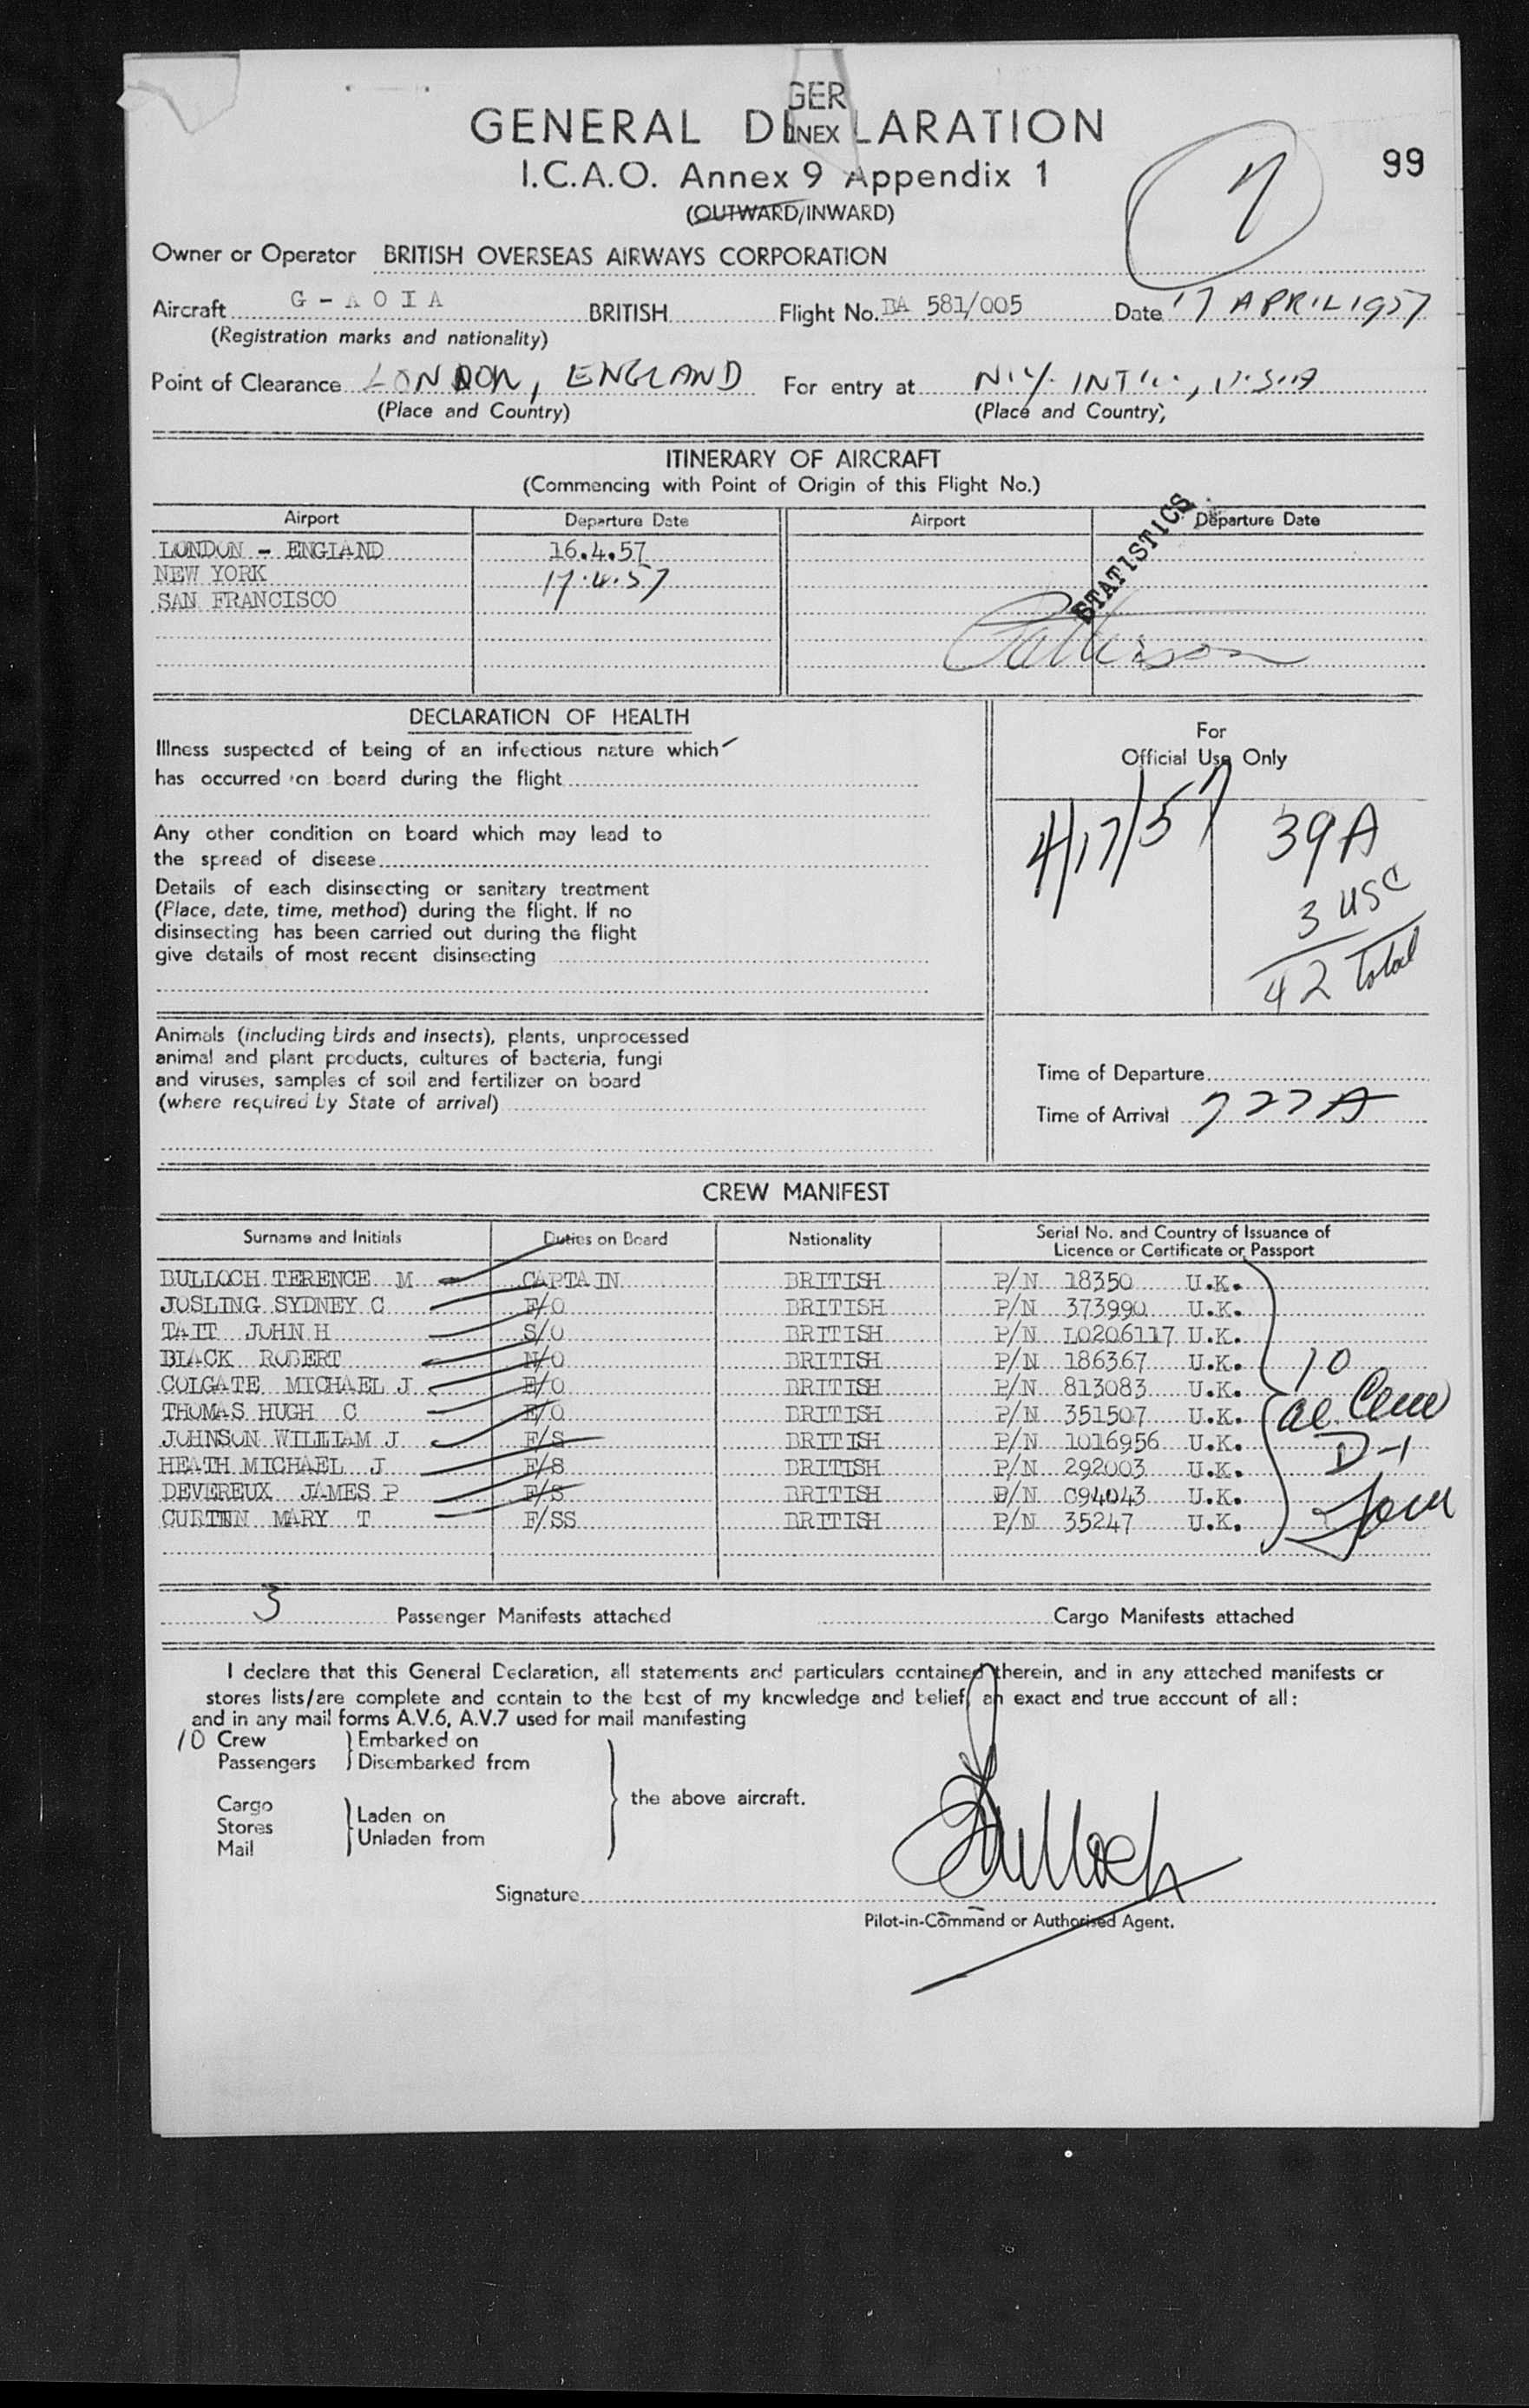 GER
GENERAL D NEX LARATION
I.C.A.O. Annex 9 Appendix 1
99
7
(OUTWARD/INWARD)
Owner or Operator BRITISH OVERSEAS AIRWAYS CORPORATION
Aircraft G-AOIA BRITISH Flight No. BA 581/005 Date 17 APRIL 1957
(Registration marks and nationality)
Point of Clearance LONDON, ENGLAND For entry at N.Y. INT'L, U.S.A
(Place and Country) (Place and Country)
ITINERARY OF AIRCRAFT
(Commencing with Point of Origin of this Flight No.)
Airport Departure Date Airport Departure Date
STATISTICS
LONDON - ENGLAND 16.4.57
NEW YORK 17.4.57
SAN FRANCISCO
DECLARATION OF HEALTH
Illness suspected of being of an infectious nature which
has occurred on board during the flight
Any other condition on board which may lead to
the spread of disease
Details of each disinsecting or sanitary treatment
(Place, date, time, method) during the flight. If no
disinsecting has been carried out during the flight
give details of most recent disinsecting
Animals (including birds and insects), plants, unprocessed
animal and plant products, cultures of bacteria, fungi
and viruses, samples of soil and fertilizer on board
(where required by State of arrival)
For
Official Use Only
4/17/57 39A
3 USC
42 total
Time of Departure
Time of Arrival 727A
CREW MANIFEST
Surname and Initials Duties on Board Nationality Serial No. and Country of Issuance of
Licence or Certificate or Passport
BULLOCH TERENCE M CAPTAIN BRITISH P/N 18350 U.K.
JOSLING SYDNEY C F/O BRITISH P/N 373990 U.K.
TAIT JOHN H S/O BRITISH P/N L0206117 U.K.
BLACK ROBERT N/O BRITISH P/N 186367 U.K.
COLGATE MICHAEL J E/O BRITISH P/N 813083 U.K.
THOMAS HUGH C E/O BRITISH P/N 351507 U.K.
JOHNSON WILLIAM J F/S BRITISH P/N 1016956 U.K.
HEATH MICHAEL J F/S BRITISH P/N 292003 U.K.
DEVEREUX JAMES P F/S BRITISH P/N C94043 U.K.
CURTIN MARY T F/SS BRITISH P/N 35247 U.K.
10
D-1
3 Passenger Manifests attached Cargo Manifests attached
I declare that this General Declaration, all statements and particulars contained therein, and in any attached manifests or
stores lists/are complete and contain to the best of my knowledge and belief, an exact and true account of all:
and in any mail forms A.V.6, A.V.7 used for mail manifesting
10 Crew Embarked on
Passengers Disembarked from
the above aircraft.
Cargo
Stores Laden on
Mail Unladen from
Bulloch
Signature
Pilot-in-Command or Authorised Agent.